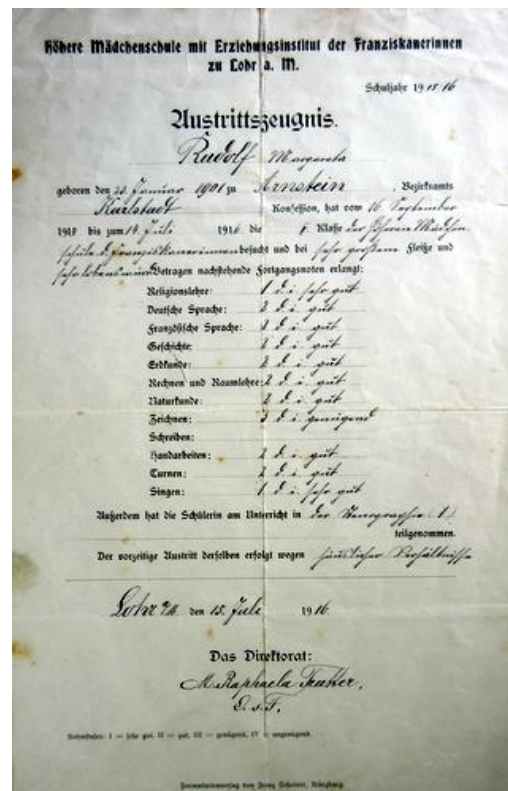 Höhere Mädchenschule mit Erziehungsinstitut der Franziskanerinnen
zu Lohr a. M.
Schuljahr 1915/16
Austrittszeugnis.
Rudolf Margareta
geboren den 20. Januar 1901 zu Arnstein, Bezirksamts
Karlstadt Konfession, hat vom 16. September
19 bis zum 14. Juli 1916 die Klasse der höheren Mädchen
schule d. Franziskanerinnen besucht und bei sehr großem Fleiße und
sehr lobenswürd. Betragen nachstehende Fortgangsnoten erlangt:
Religionslehre: 1 d. i. sehr gut
Deutsche Sprache: 2 d. i. gut
Französische Sprache: 2 d. i. gut
Geschichte: 2 d. i. gut
Erdkunde: 2 d. i. gut
Rechnen und Raumlehre: 2 d. i. gut
Naturkunde: 2 d. i. gut
Zeichnen: 3 d. i. genügend
Schreiben:
Handarbeiten: 2 d. i. gut
Turnen: 2 d. i. gut
Singen: 1 d. i. sehr gut
Außerdem hat die Schülerin am Unterricht in der Stenographie (1)
teilgenommen.
Der vorzeitige Austritt derselben erfolgt wegen häuslicher Verhältnisse
Lohr a/M. den 15. Juli 1916
Das Direktorat:
M. Raphaela
O. S. F.
Notenstufen: I = sehr gut, II = gut, III = genügend, IV = ungenügend.
Formularienverlag von Franz Scheiner, Würzburg.